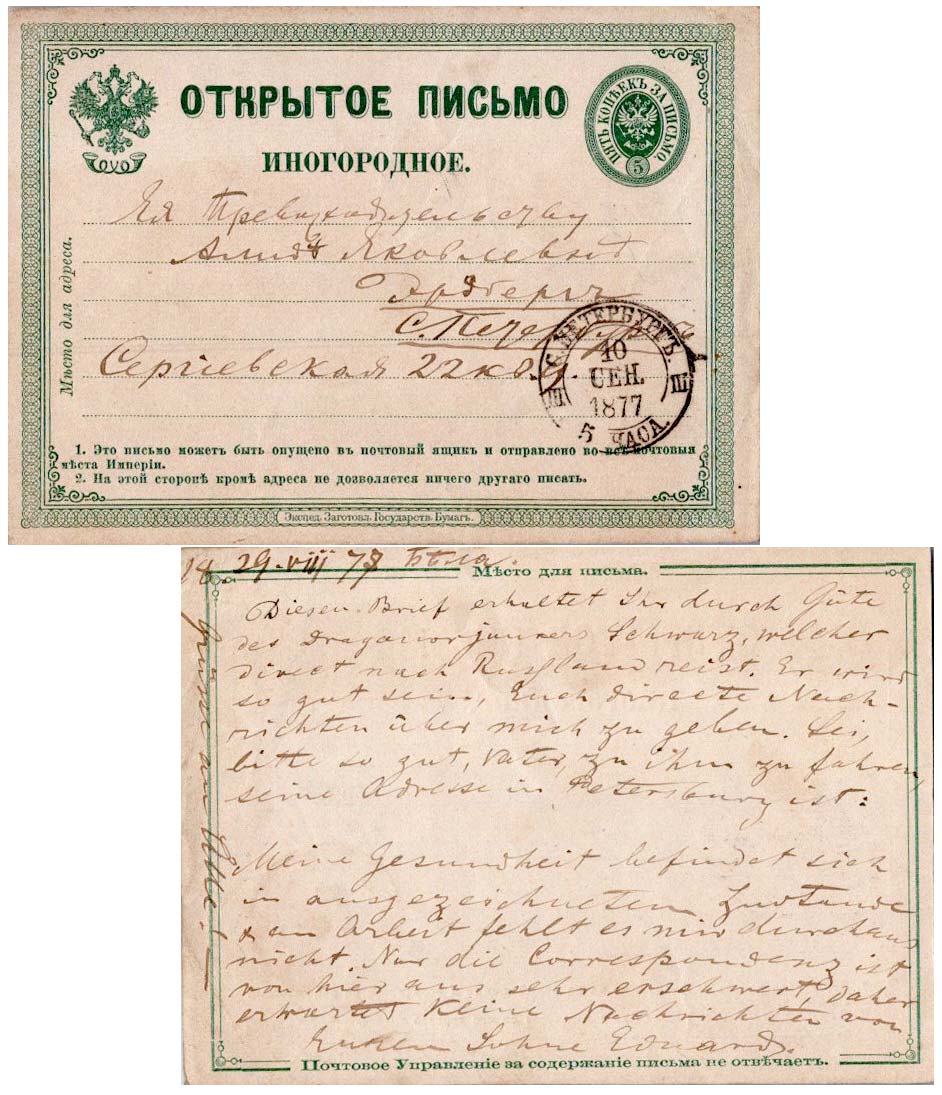 ОТКРЫТОЕ ПИСЬМО
ИНОГОРОДНОЕ.
ПЯТЬ КОПѢЕКЪ ЗА ПИСЬМО.
5
Мѣсто для адреса.
Ея Превосходительству
Яковлевнѣ
С. Петербургъ
Сергіевская 22 кв.
С. ПЕТЕРБУРГЪ.
10
СЕН.
1877
III III
5 ЧАСА.
1. Это письмо можетъ быть опущено въ почтовый ящикъ и отправлено во всѣ почтовыя
мѣста Имперіи.
2. На этой сторонѣ кромѣ адреса не дозволяется ничего другаго писать.
Экспед. Заготовл. Государств. Бумагъ.
18 29. VIII 77 Бѣла.
Мѣсто для письма.
Diesen Brief erhaltet Ihr durch Güte
des Dragonerjunkers Schwarz, welcher
direct nach Russland reist. Er wird
so gut sein, Euch directe Nach-
richten über mich zu geben. Sei,
bitte so gut, Vater, zu ihm zu fahren,
seine Adresse in Petersburg ist:
Meine Gesundheit befindet sich
in ausgezeichnetem Zustande
& an Arbeit fehlt es mir durchaus
nicht. Nur die Correspondenz ist
von hier aus sehr erschwert, daher
erwartet keine Nachrichten von
Eurem Sohne Eduard.
Grüsse an Alle!
Почтовое Управленіе за содержаніе письма не отвѣчаетъ.